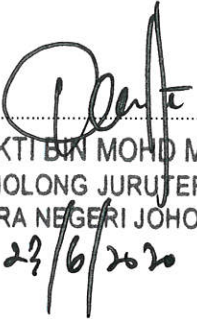 KTI BIN MOHD M
OLONG JURUTER
RA NEGERI JOHO
23/6/2020